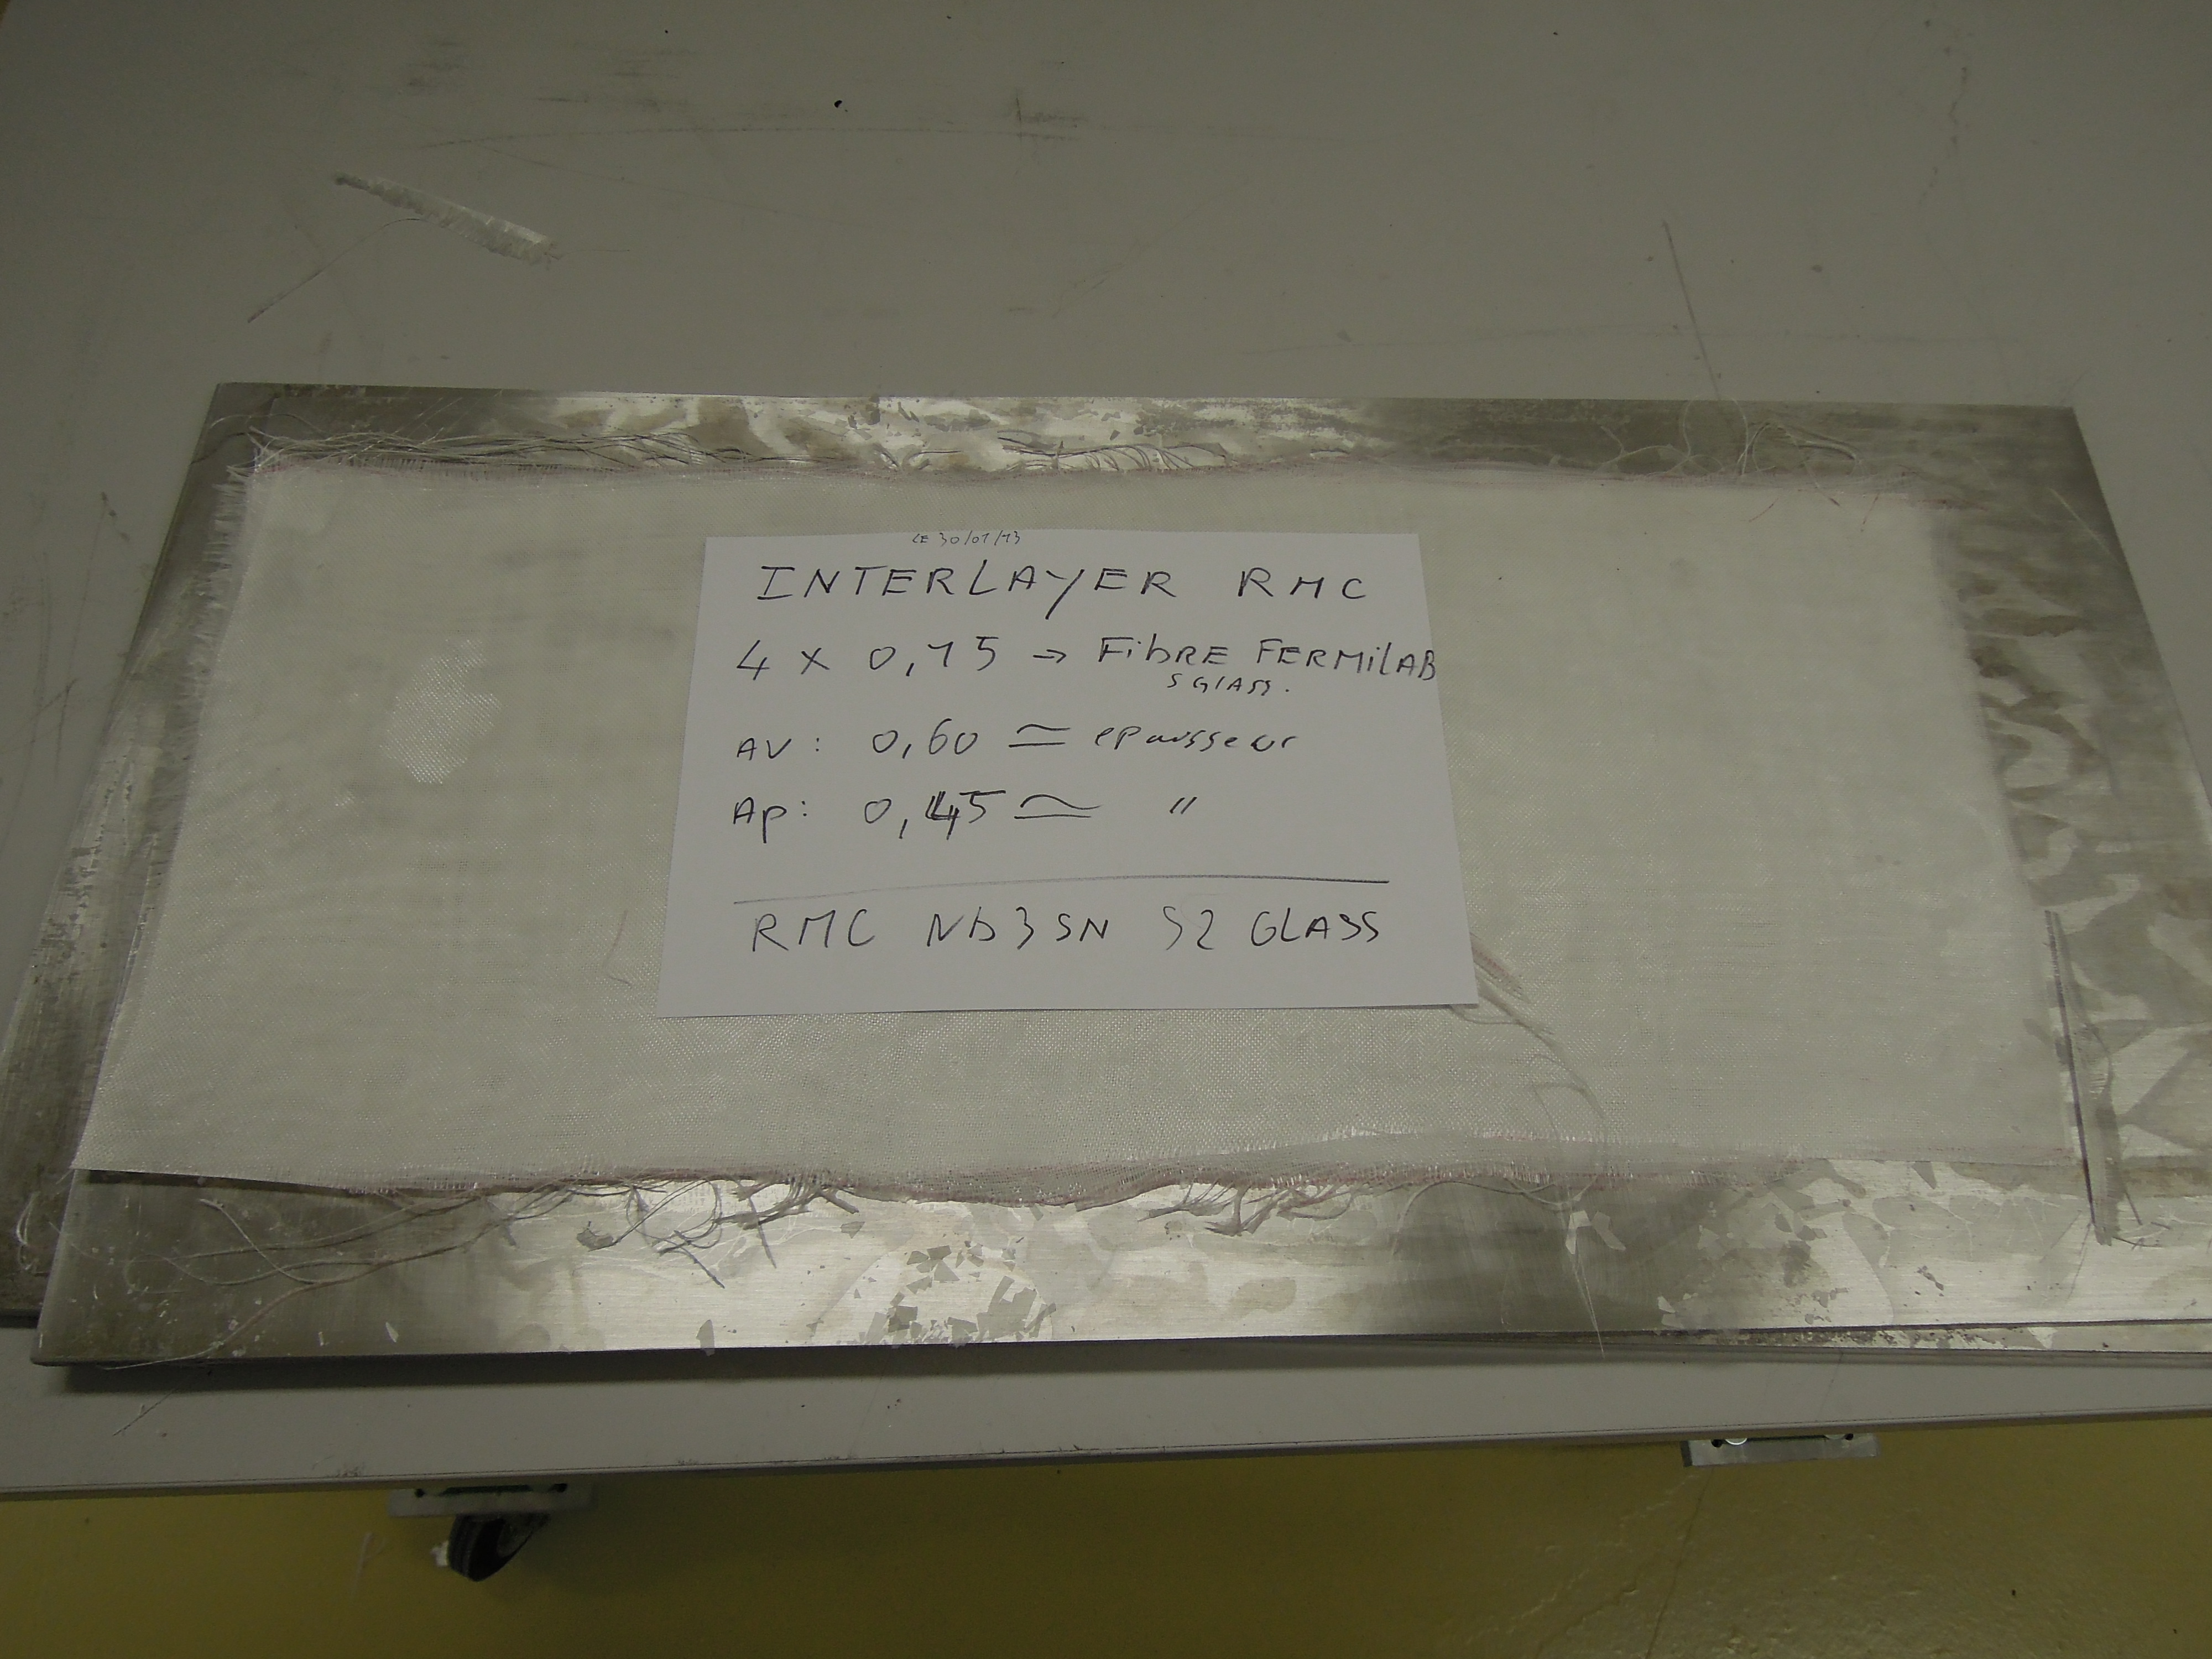 LE 30/01/13
INTERLAYER RMC
4 x 0,15 → FibRE FERMilAB
S GlASS.
AV : 0,60 ≃ epaisseur
Ap : 0,45 ≃ "
RMC Nb3SN S2 GLASS